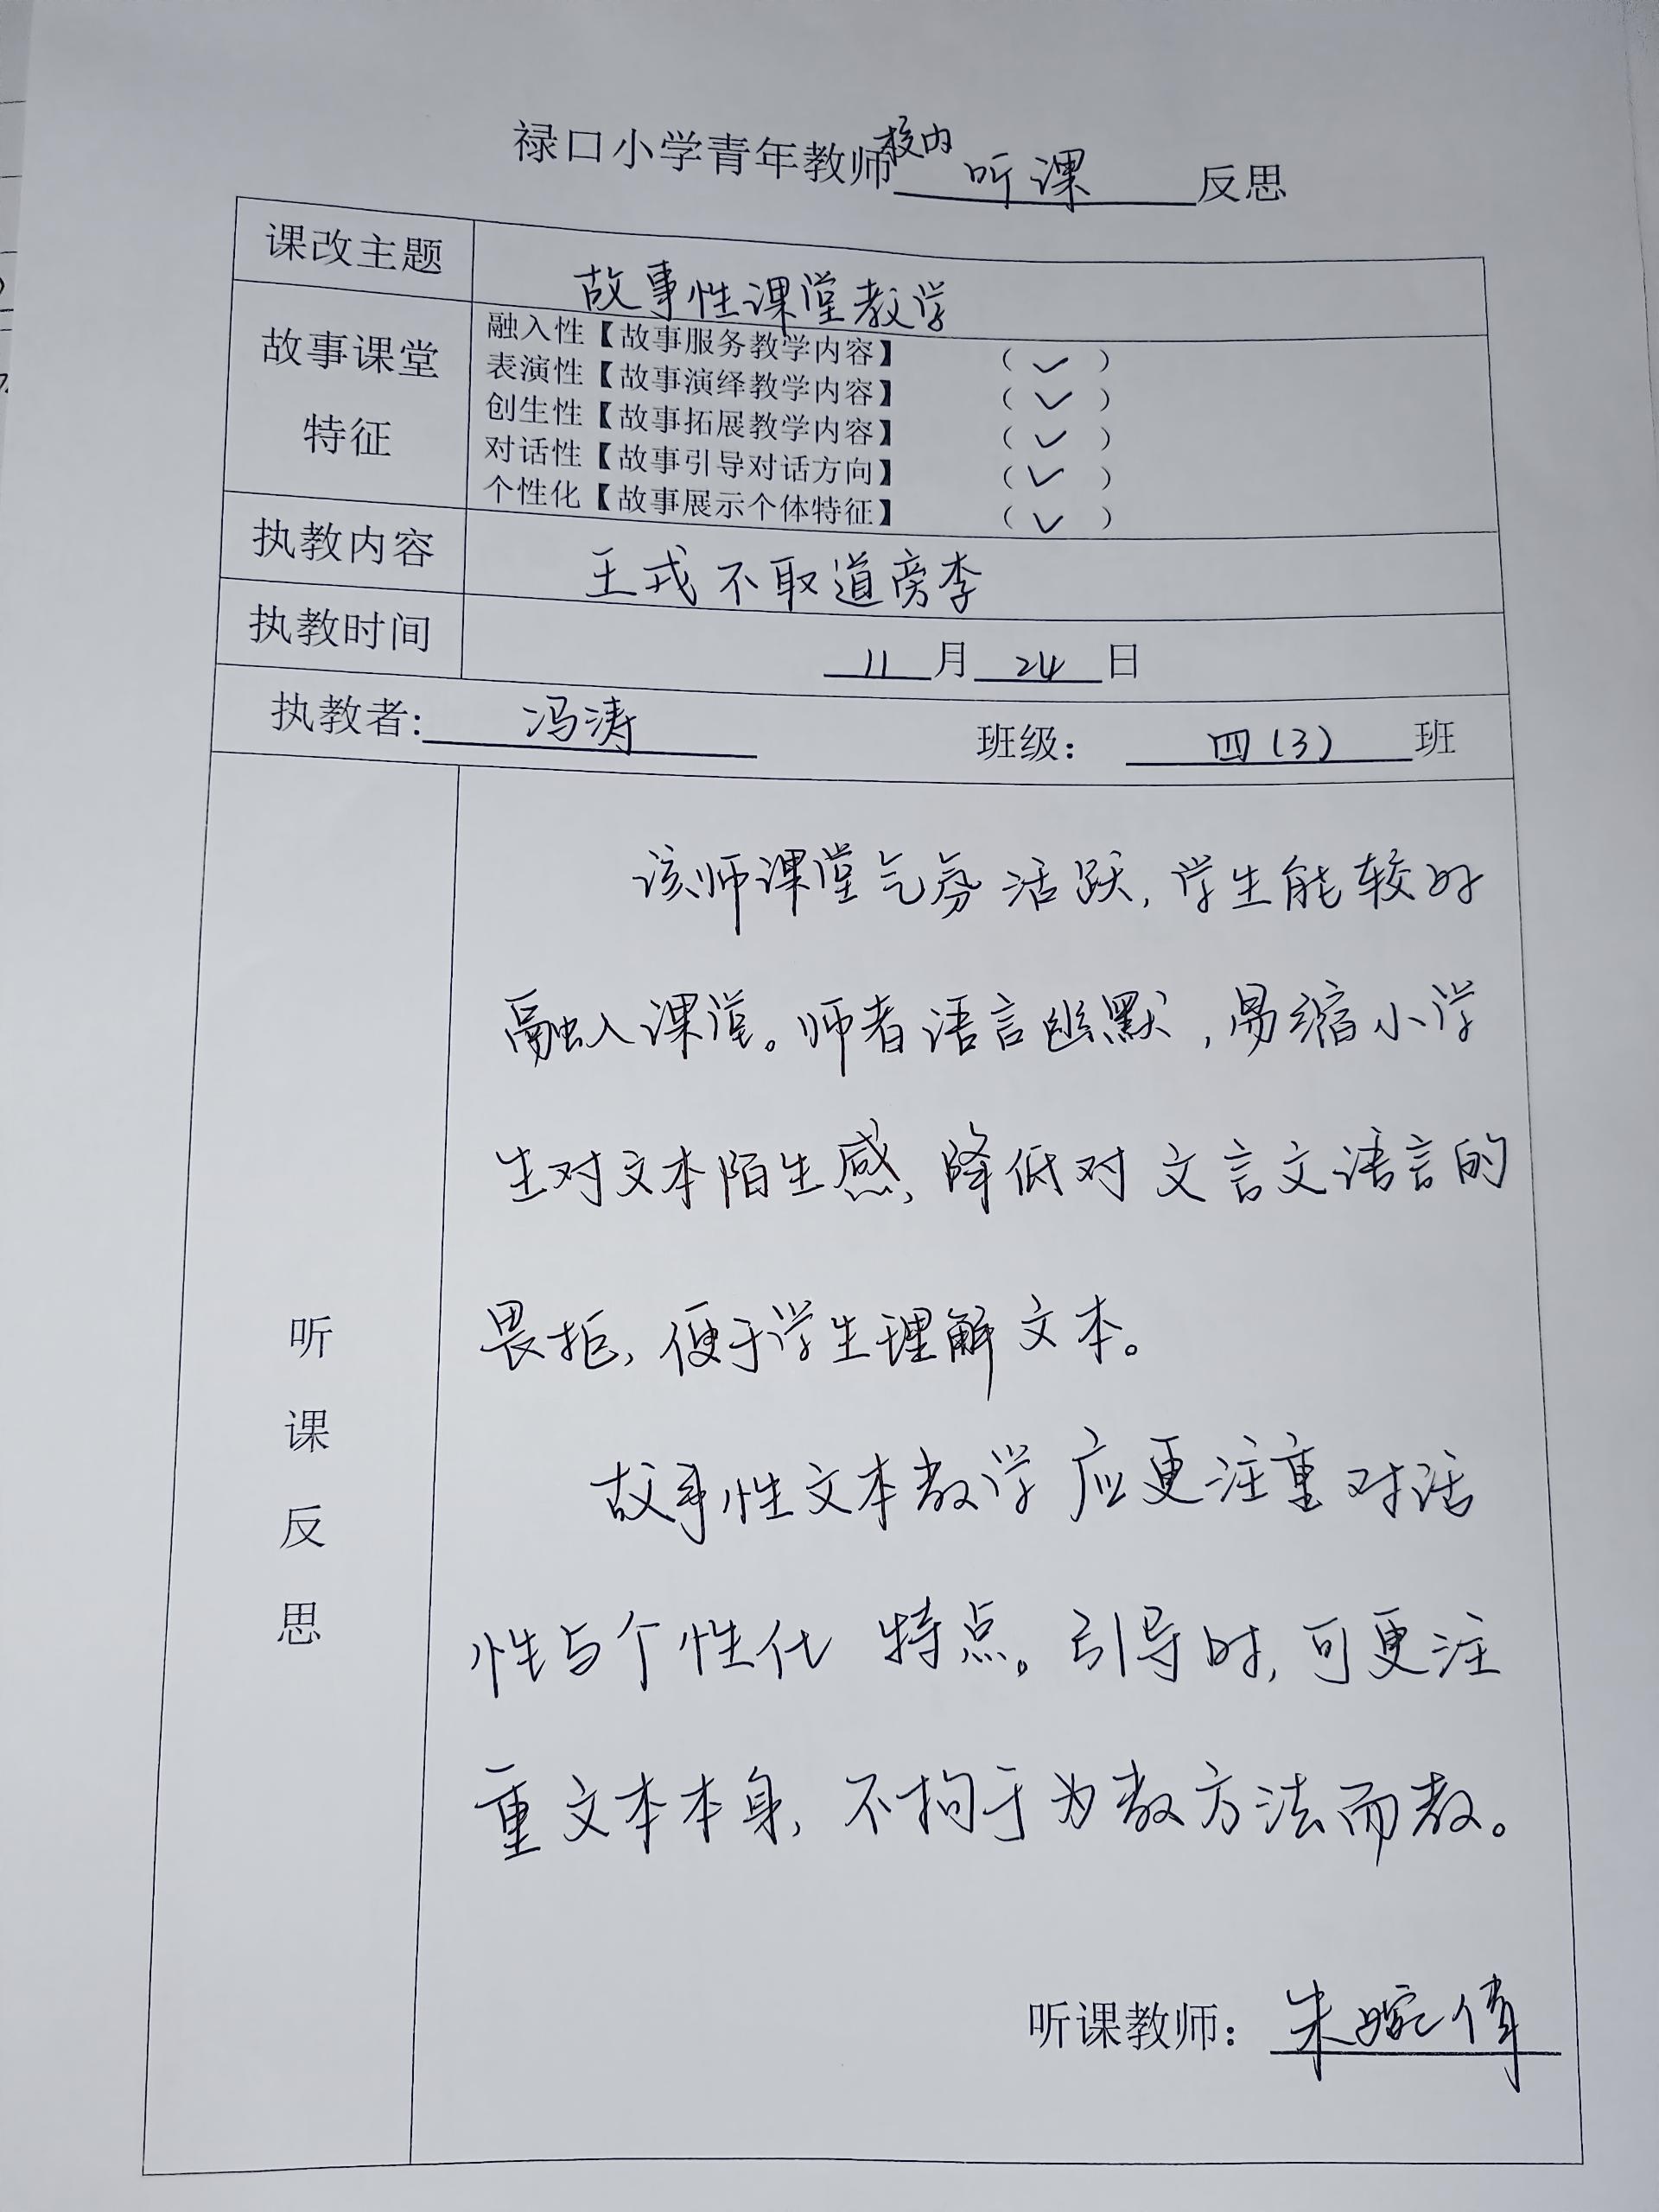 禄口小学青年教师校内听课反思
课改主题 故事性课堂教学
故事课堂
特征
融入性【故事服务教学内容】 （✓）
表演性【故事演绎教学内容】 （✓）
创生性【故事拓展教学内容】 （✓）
对话性【故事引导对话方向】 （✓）
个性化【故事展示个体特征】 （✓）
执教内容 王戎不取道旁李
执教时间 11月24日
执教者: 冯涛 班级： 四(3)班
听
课
反
思
该师课堂气氛活跃，学生能较好
融入课堂。师者语言幽默，易缩小学
生对文本陌生感，降低对文言文语言的
畏拒，便于学生理解文本。
故事性文本教学应更注重对话
性与个性化特点。引导时，可更注
重文本本身，不拘于为教方法而教。
听课教师：朱婉倩